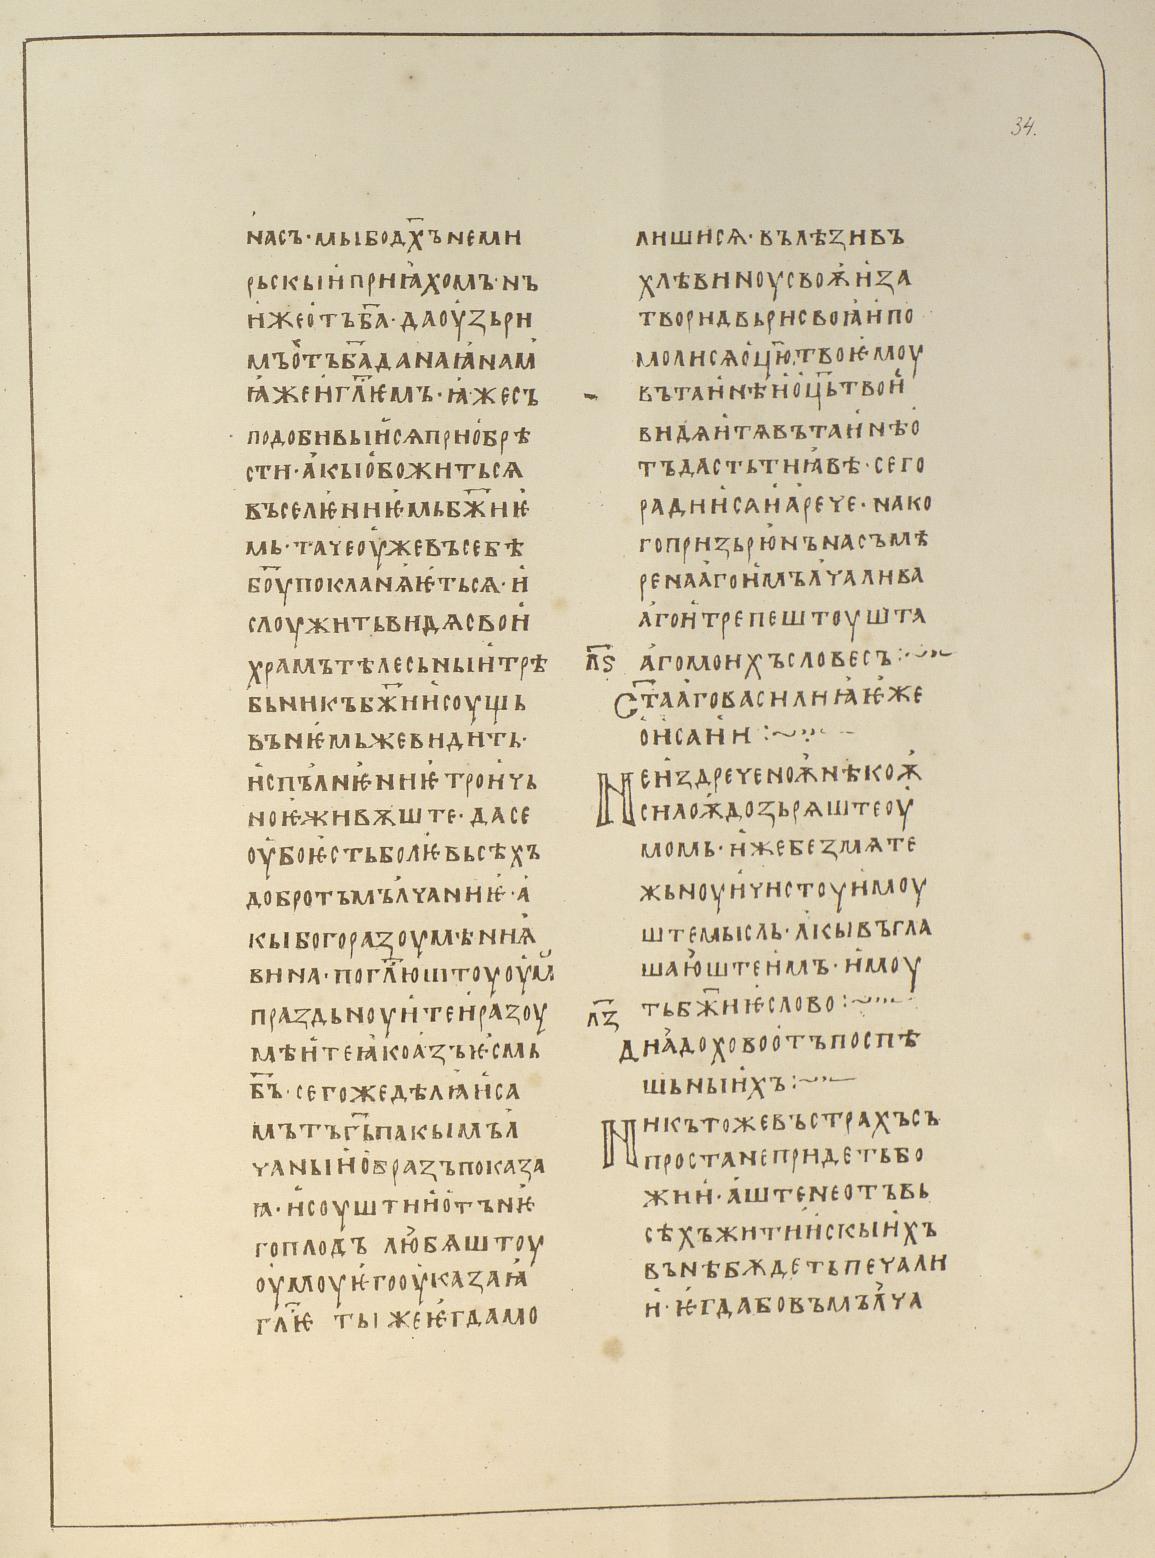 34.
насъ·мы бо д҃хъ не ми
рьскыи приꙗхомъ·нъ
иже отъ б҃а·да оузьри
мъ отъ б҃а данаꙗ нам
ꙗже и гл҃ѥмъ·ꙗже съ
подобивыися приобрѣ
сти·акы обожиться
въселѥниѥмь бж҃иѥ
мь·таче оуже въ себѣ
б҃оу покланꙗѥться·и
слоужить видѧ свои
храмъ тѣлесьныи трѣ
бьникъ бж҃ии соущь
въ нѥмь же видить·
испълнѥниѥ троичь
ноѥ живѫште·да се
оубо ѥсть болѥ вьсѣхъ
добротъ мълчаниѥ·а
кы богоразоумѣниꙗ
вина·погл҃юштоу оум
празdьноуите и разоу
мѣите ꙗко азъ ѥсмь
б҃ъ·сего же дѣлꙗ и са
мъ тъ г҃ь пакы мъл
чаныи образъ показа
ꙗ·и соуштии отъ нѥ
го плодъ любѧштоу
оумоу ѥго оуказаꙗ
гл҃ѥ ты же ѥгда мо
лишисѧ·вълѣзи въ
хлѣвиноу своѭ и за
твори двьри своꙗ и по
молисѧ оц҃ю твоѥмоу
въ таинѣ и оц҃ь твои
видѧи тѧ въ таинѣ о
тъдасть ти ꙗвѣ·сего
ради исаиа рече·на ко
го призьрю нъ на съмѣ
ренааго и мълчалива
аго и трепештоушта
л҃ѕ аго моихъ словесъ:~
Ст҃ааго василиꙗ ѥже
о исаии:~
Неиздреченоѭ нѣкоѭ
силоѭ дозьрѧште оу
момь·иже без мѧте
жьноу и чистоу имоу
ште мысль·акы въгла
шаюште имъ·имоу
ть бж҃иѥ слово:~
л҃з
Дна доховоотъ поспѣ
шьныихъ:~
Никътоже въ страхъ съ
простане придеть бо
жии·аште не отъ вь
сѣхъ житиискыихъ
вънѣ бѫдеть печали
и·ѥгда бо въ мълча